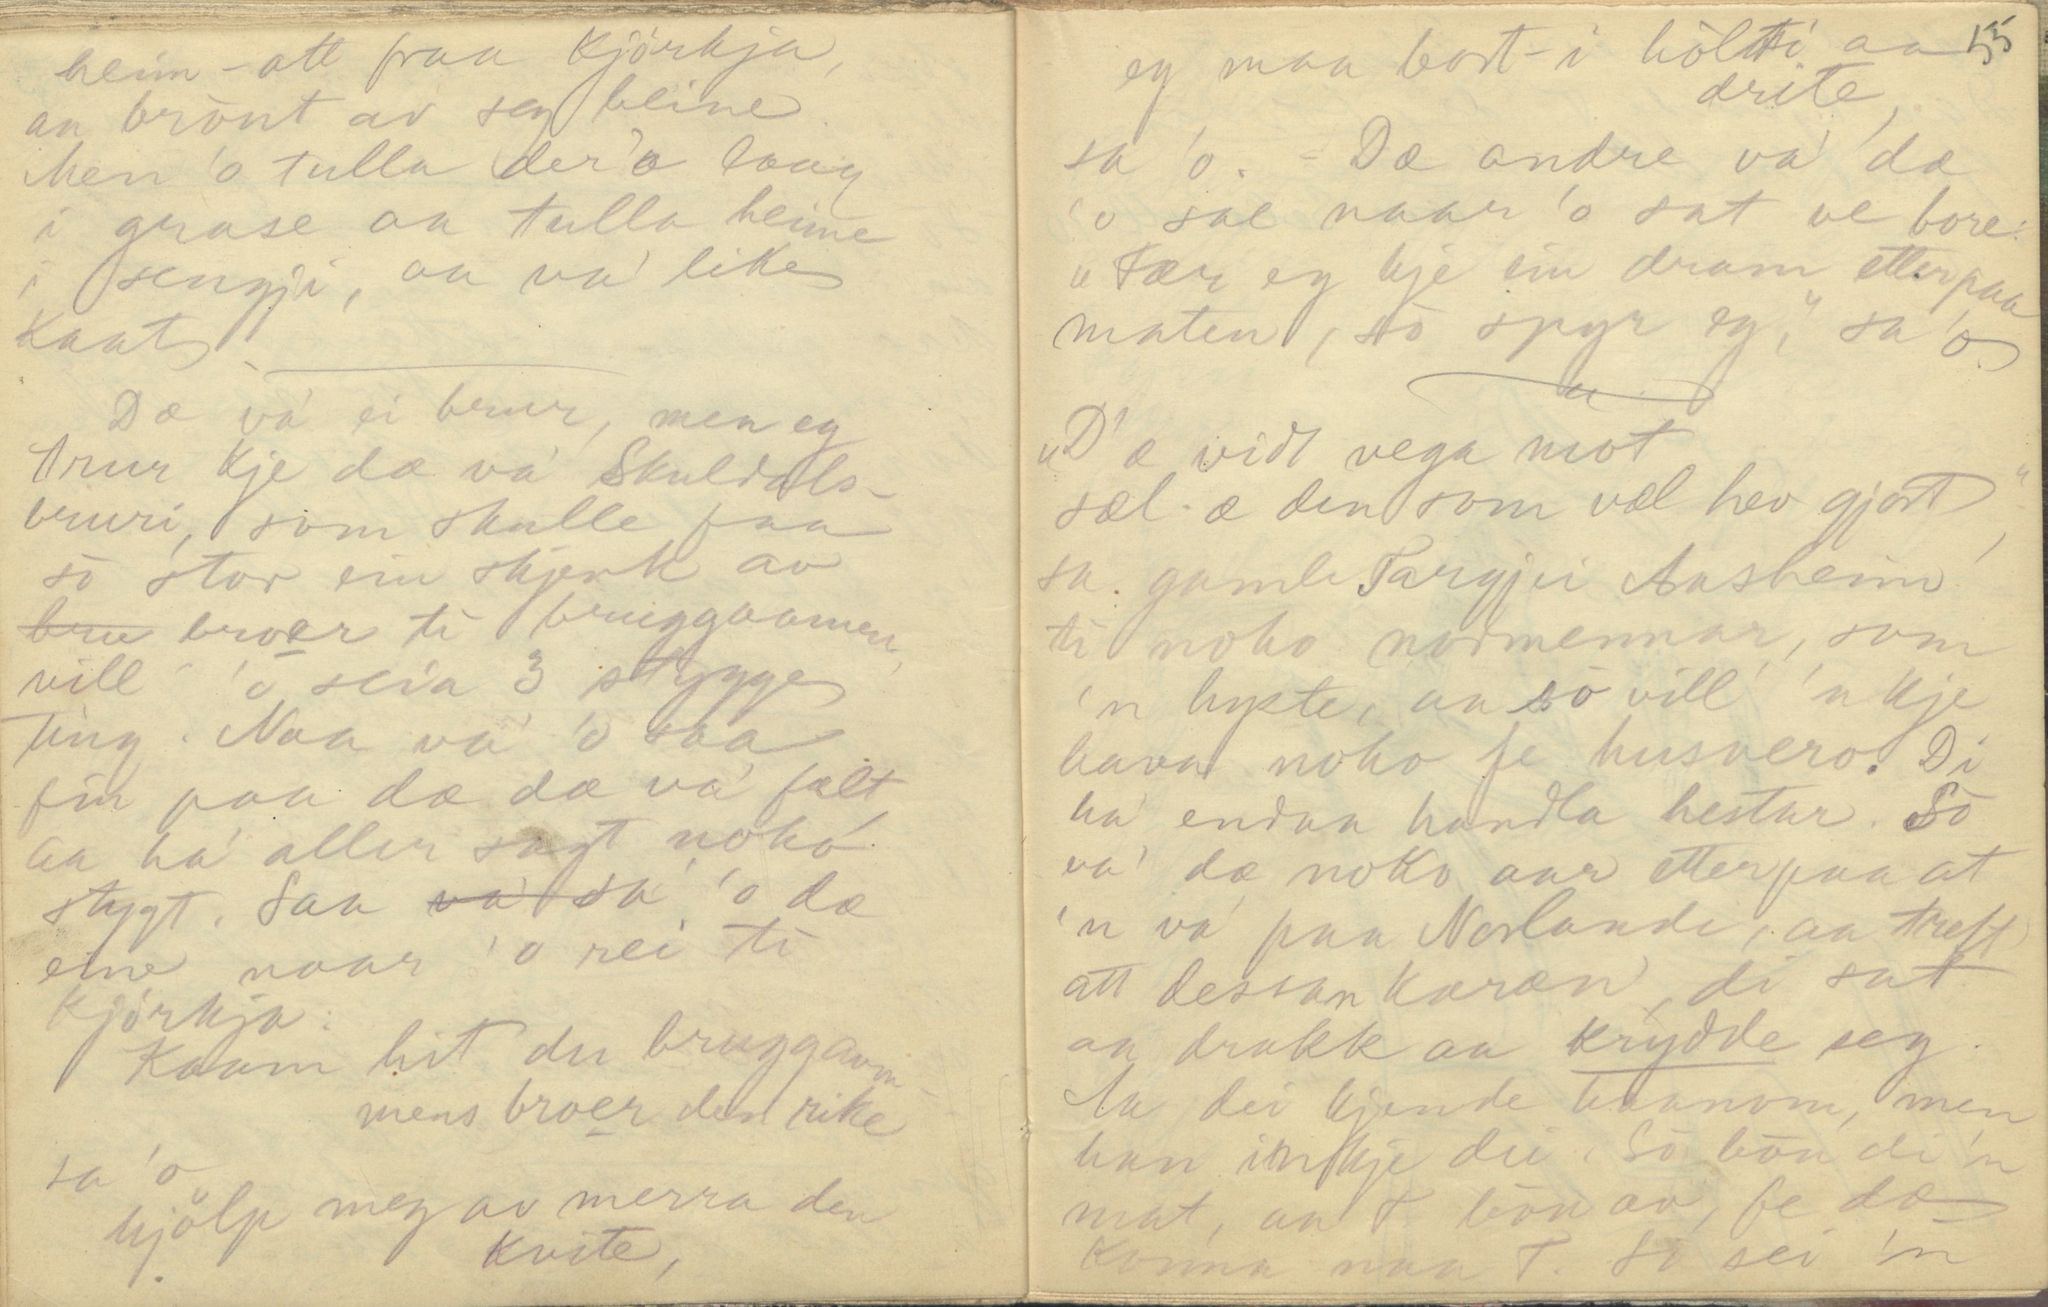 heim-att fraa Kjörkja,
aa brönt av seg beine.
Men 'o tulla der'o laag
i grase aa tulla heime
i sengji, aa va' like
Kaat.
Dæ va' ei brur, men eg
trur kje dæ va' Skuldals-
bruri, som skulle faa
sò stor ein skjenk av
bru broer ti bruggaamen,
vill' 'o seia 3 stygge
ting. Naa va' 'o saa
fin paa dæ dæ va' fælt,
aa ha' aller sagt noko
stygt. Saa va' sa' 'o dæ
eine naar 'o rei ti
Kjörkja:
Kaam hit du bruggaam-
mens broer den rike
sa 'o.
hjölp meg av merra den
Kvite,
55
eg maa bort-i hölti aa
drite,
sa 'o. - Dæ andre va' dæ
'o sae naar 'o sat ve bore:
"Fær eg kje ein dram etterpaa
maten, sò spyr eg," sa 'o.
"D'æ vidt vega mot
sæl æ den som væl hev gjort",
sa gamle Targjei Aasheim
ti noko normennar, som
'n hyste, aa sò vill' 'n kje
hava noko fe husvero. Di
ha' endaa handla hestar. Sò
va' dæ noko aar etterpaa at
'n va' paa Norlande, aa treft
att dessan karan, di sat
aa drakk aa krydde seg.
Aa dei kjende haanom, men
han inkje dei. Sò bou di 'n
mat, aa T. bou av, fe dæ
Konna naa T. So sei 'n